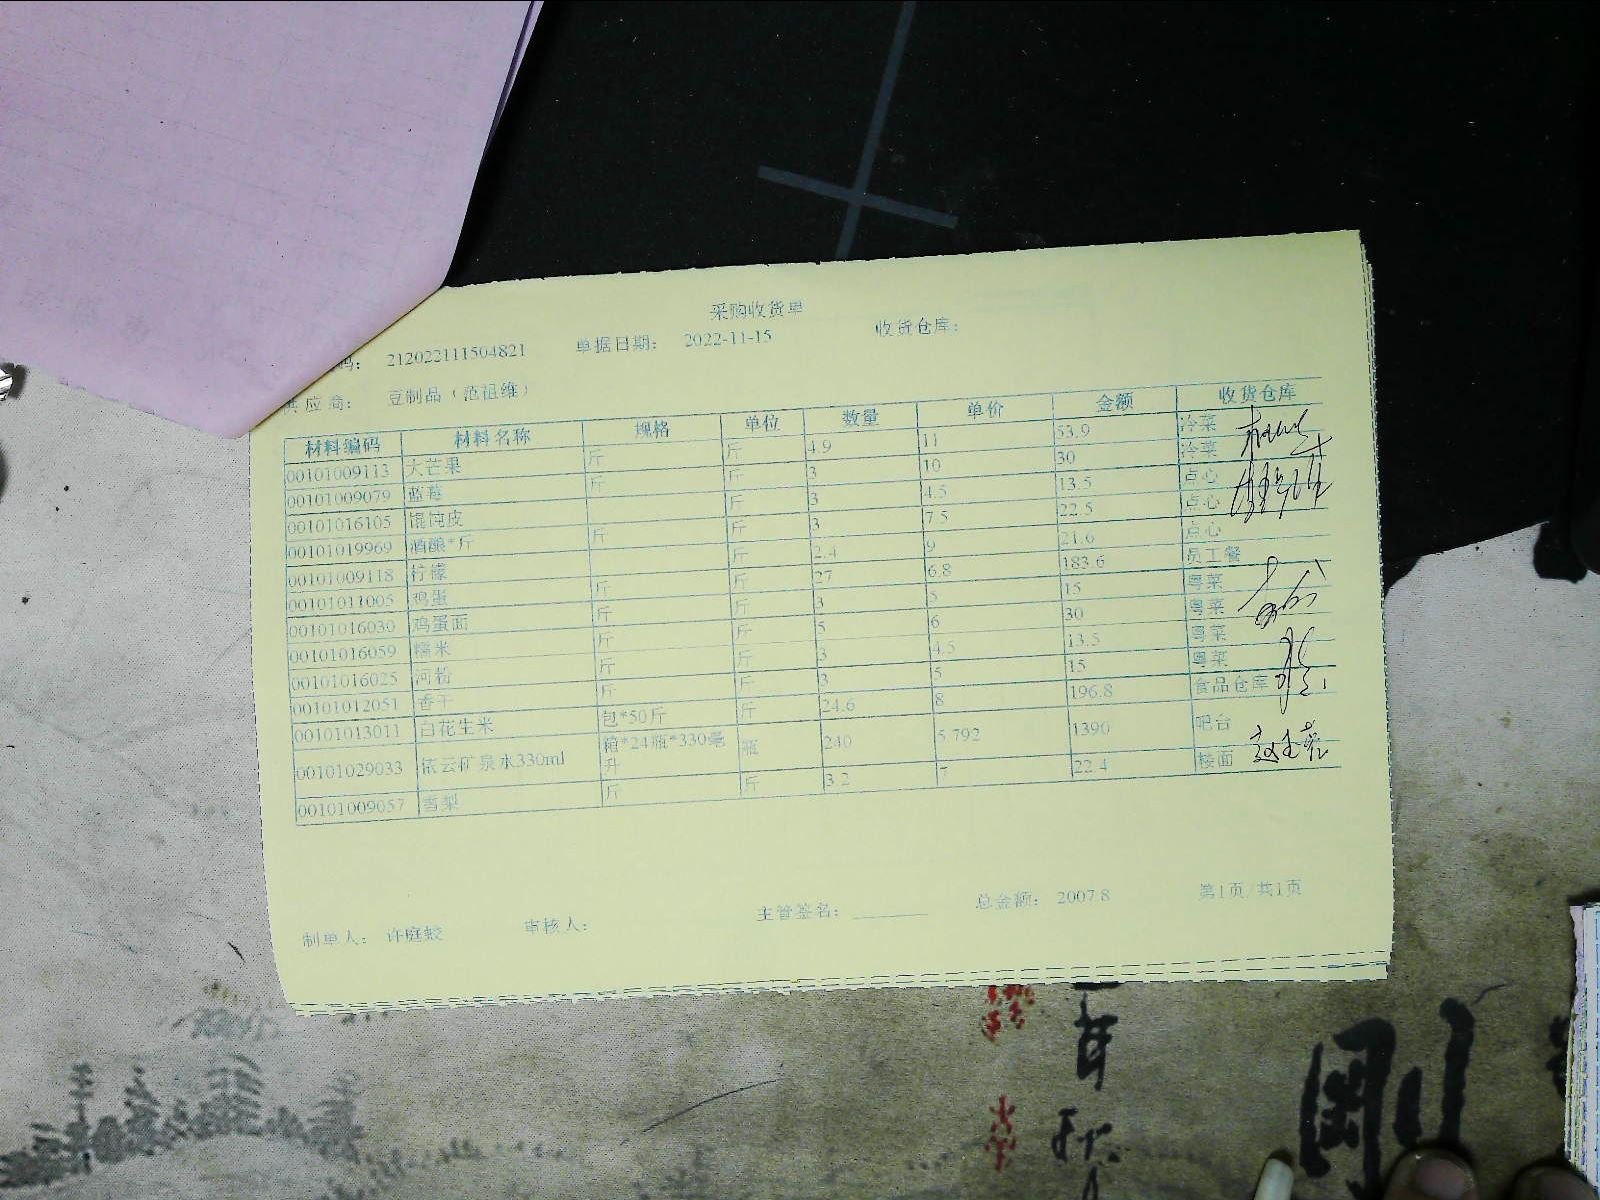 采购收货单
码： 212022111504821 单据日期： 2022-11-15 收货仓库：
供应商： 豆制品（范祖维）
材料编码 材料名称 规格 单位 数量 单价 金额 收货仓库
00101009113 大芒果 斤 斤 4.9 11 53.9 冷菜
00101009079 蓝莓 斤 斤 3 10 30 冷菜
00101016105 馄饨皮 斤 3 4.5 13.5 点心
00101019969 酒酿*斤 斤 3 7.5 22.5 点心
00101009118 柠檬 斤 斤 2.4 9 21.6 点心
00101011005 鸡蛋 斤 27 6.8 183.6 员工餐
00101016030 鸡蛋面 斤 斤 3 5 15 粤菜
00101016059 糯米 斤 斤 5 6 30 粤菜
00101016025 河粉 斤 斤 3 4.5 13.5 粤菜
00101012051 香干 斤 斤 3 5 15 粤菜
00101013011 白花生米 包*50斤 斤 24.6 8 196.8 食品仓库
00101029033 依云矿泉水330ml 箱*24瓶*330毫升 瓶 240 5.792 1390 吧台
00101009057 雪梨 斤 斤 3.2 7 22.4 楼面
制单人： 许庭蛟 审核人： 主管签名： 总金额： 2007.8 第1页/共1页